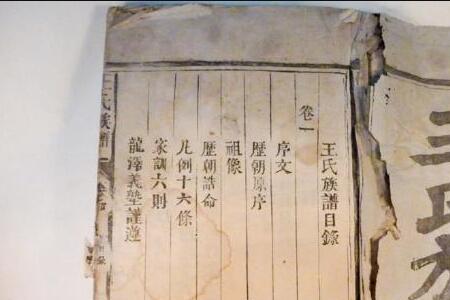 王氏族譜目錄
卷一
序文
歷朝原序
祖像
歷朝誥命
凡例十六條
家訓六則
王氏族譜
王氏族